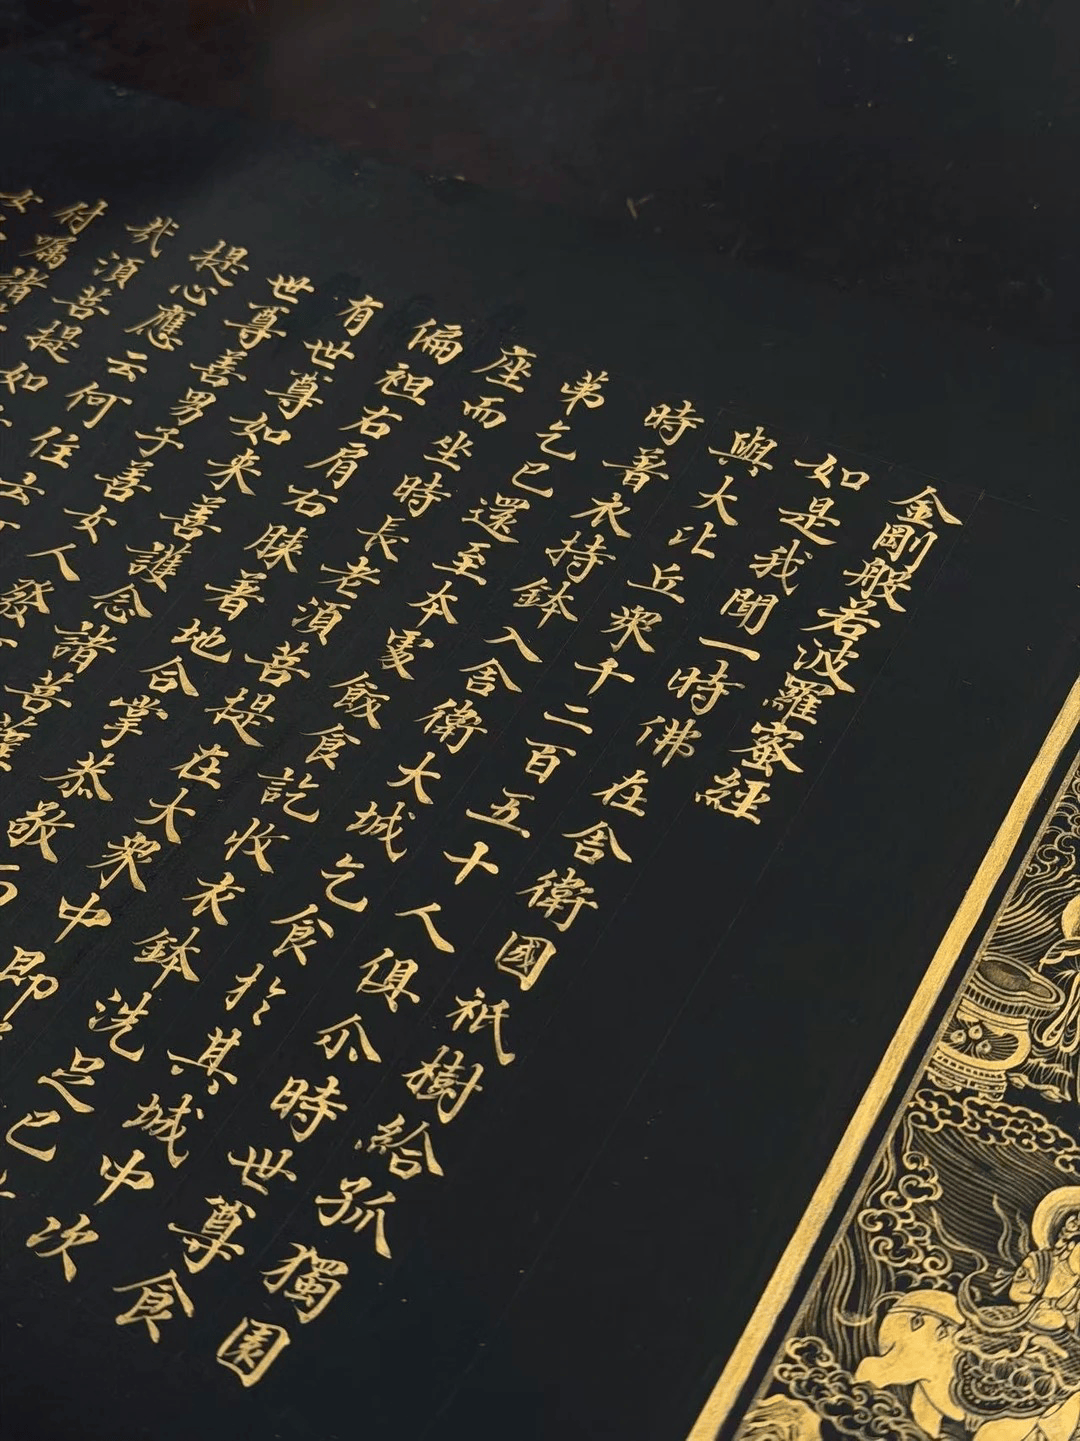 金剛般若波羅蜜經
如是我聞一時佛在舍衛國祇樹給孤獨園
與大比丘衆千二百五十人俱尒時世尊食
時著衣持鉢入舍衛大城乞食於其城中次
弟乞已還至本處飯食訖收衣鉢洗足已
座而坐時長老須菩提在大衆中即
偏袒右肩右膝著地合掌恭敬而
有世尊如來善護念諸菩薩
世尊善男子善女人發
提心應云何住云
我須菩提如
付囑諸
女